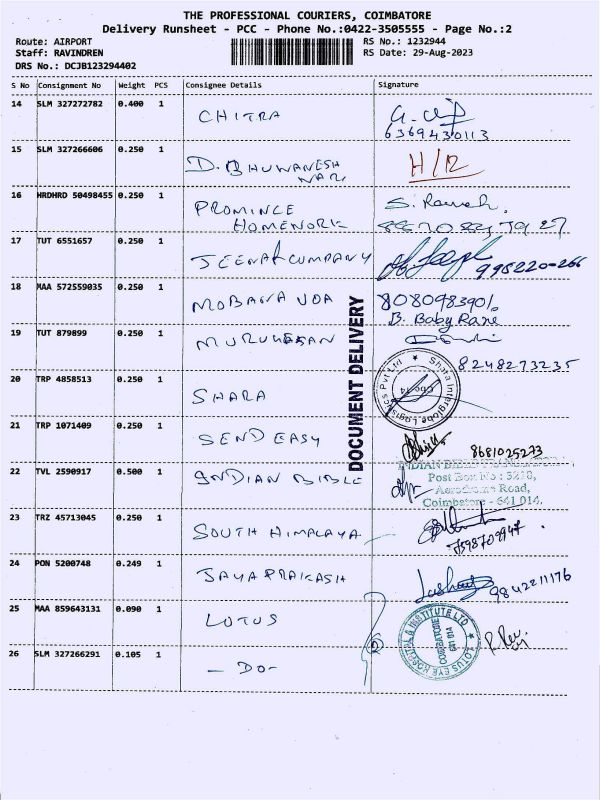 THE PROFESSIONAL COURIERS, COIMBATORE
Delivery Runsheet - PCC - Phone No.:0422-3505555 - Page No.:2
Route: AIRPORT
Staff: RAVINDREN
DRS No.: DCJB123294402
RS No.: 1232944
RS Date: 29-Aug-2023
S No Consignment No Weight PCS Consignee Details Signature
14 SLM 327272782 0.400 1 CHITRA
6369430113
15 SLM 327266606 0.250 1 D. BHUWANESH H/R
WARI
16 HRDHRD 50498455 0.250 1 PROMINCE S. Ramesh.
HOMEWORK
17 TUT 6551657 0.250 1 JEENAT COMPANY
995220-266
18 MAA 572559035 0.250 1 8080983901
B. Baby Rane
19 TUT 879899 0.250 1 MURUGESAN
8248273235
DOCUMENT DELIVERY
20 TRP 4858513 0.250 1 SHARA
Shara Interglobe Logistics Pvt Ltd
21 TRP 1071409 0.250 1 SEND EASY
8681025273
22 TVL 2590917 0.500 1 INDIAN BIBLE
Post Box No : 3218,
Aerodrome Road,
Coimbatore - 641 014.
23 TRZ 45713045 0.250 1 SOUTH HIMALAYA
24 PON 5200748 0.249 1 JAYAPRAKASH
9842211176
25 MAA 859643131 0.090 1 LOTUS
LOTUS EYE HOSPITAL & INSTITUTE LTD
COIMBATORE
641 014
26 SLM 327266291 0.105 1 - DO -